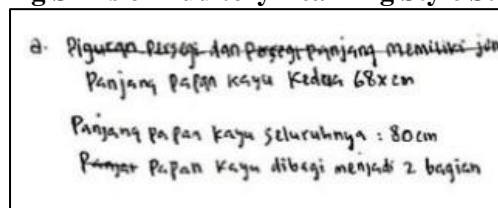 a. Piguran persegi dan persegi panjang memiliki
Panjang papan kayu kedua 68x cm
Panjang papan kayu seluruhnya : 80 cm
Papan kayu dibagi menjadi 2 bagian